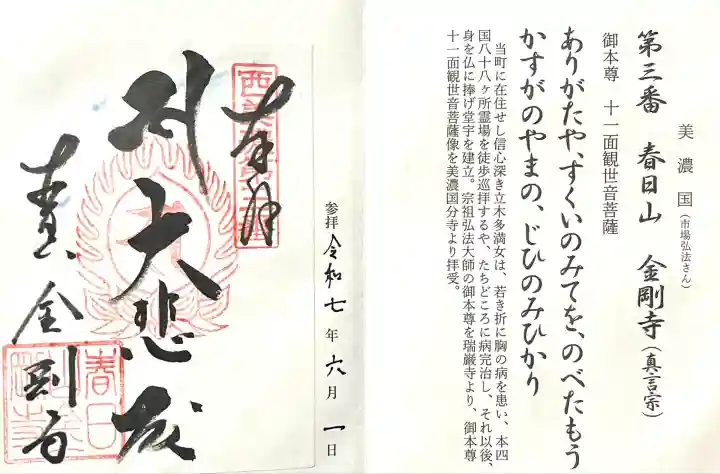 美濃国(市場弘法さん)
第三番 春日山 金剛寺(真言宗)
御本尊 十一面観世音菩薩
ありがたや、すくいのみてを、のべたもう
かすがのやまの、じひのみひかり
当町に在住せし信心深き立木多満女は、若き折に胸の病を患い、本四
国八十八ヶ所霊場を徒歩巡拝するや、たちどころに病完治し、それ以後、
身を仏に捧げ堂宇を建立。宗祖弘法大師の御本尊を瑞巌寺より、御本尊
十一面観世音菩薩像を美濃国分寺より拝受。
参拝 令和七年六月一日
奉拝
大悲殿
金剛寺
春日